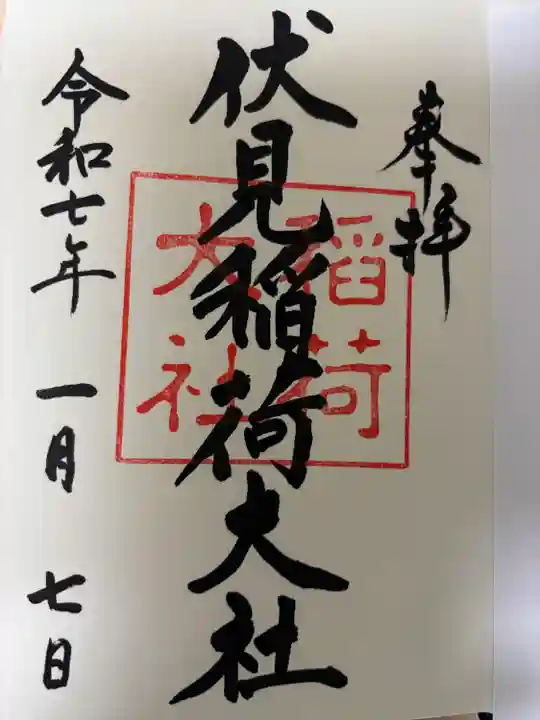 奉拝
伏見稲荷大社
稲荷
大社
令和七年 一月 七日